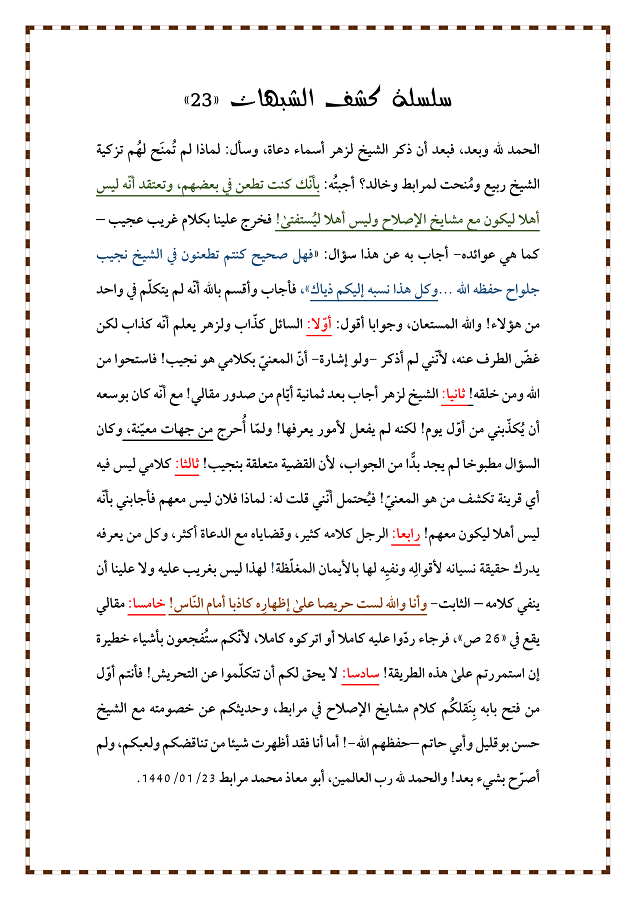 سلسلة كشف الشبهات «23»
الحمد لله وبعد، فبعد أن ذكر الشيخ لزهر أسماء دعاة، وسأل: لماذا لم تُمنَح لهُم تزكية
الشيخ ربيع ومُنحت لمرابط وخالد؟ أجبتُه: بأنّك كنت تطعن في بعضهم، وتعتقد أنّه ليس
أهلا ليكون مع مشايخ الإصلاح وليس أهلا ليُستفتىٰ! فخرج علينا بكلام غريب عجيب –
كما هي عوائده– أجاب به عن هذا سؤال: «فهل صحيح كنتم تطعنون في الشيخ نجيب
جلواح حفظه الله ...وكل هذا نسبه إليكم ذياك»، فأجاب وأقسم بالله أنّه لم يتكلّم في واحد
من هؤلاء! والله المستعان، وجوابا أقول: أوّلا: السائل كذّاب ولزهر يعلم أنّه كذاب لكن
غضّ الطرف عنه، لأنّني لم أذكر –ولو إشارة– أنّ المعنيّ بكلامي هو نجيب! فاستحوا من
الله ومن خلقه! ثانيا: الشيخ لزهر أجاب بعد ثمانية أيّام من صدور مقالي! مع أنّه كان بوسعه
أن يُكذّبني من أوّل يوم! لكنه لم يفعل لأمور يعرفها! ولمّا أُحرج من جهات معيّنة، وكان
السؤال مطبوخا لم يجد بدًّا من الجواب، لأن القضية متعلقة بنجيب! ثالثا: كلامي ليس فيه
أي قرينة تكشف من هو المعنيّ! فيُحتمل أنّني قلت له: لماذا فلان ليس معهم فأجابني بأنّه
ليس أهلا ليكون معهم! رابعا: الرجل كلامه كثير، وقضاياه مع الدعاة أكثر، وكل من يعرفه
يدرك حقيقة نسيانه لأقوالِه ونفيِه لها بالأيمان المغلّظة! لهذا ليس بغريب عليه ولا علينا أن
ينفي كلامه – الثابت– وأنا والله لست حريصا علىٰ إظهارِه كاذبا أمام النّاس! خامسا: مقالي
يقع في «26 ص»، فرجاء ردّوا عليه كاملا أو اتركوه كاملا، لأنّكم ستُفجعون بأشياء خطيرة
إن استمررتم علىٰ هذه الطريقة! سادسا: لا يحق لكم أن تتكلّموا عن التحريش! فأنتم أوّل
من فتح بابه بِنَقلكُم كلام مشايخ الإصلاح في مرابط، وحديثكم عن خصومته مع الشيخ
حسن بوقليل وأبي حاتم –حفظهم الله–! أما أنا فقد أظهرت شيئا من تناقضكم ولعبكم، ولم
أصرّح بشيء بعد! والحمد لله رب العالمين، أبو معاذ محمد مرابط 23/ 01/ 1440.